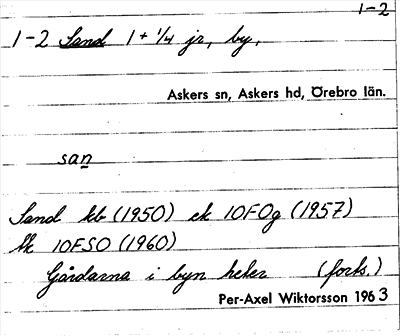 1-2
1-2 Sand 1 + 1/4 jr, by,
Askers sn, Askers hd, Örebro län.
san
Sand kb (1950) ek 10F0g (1957)
tk 10FSO (1960)
Gårdarna i byn heter (forts.)
Per-Axel Wiktorsson 1963